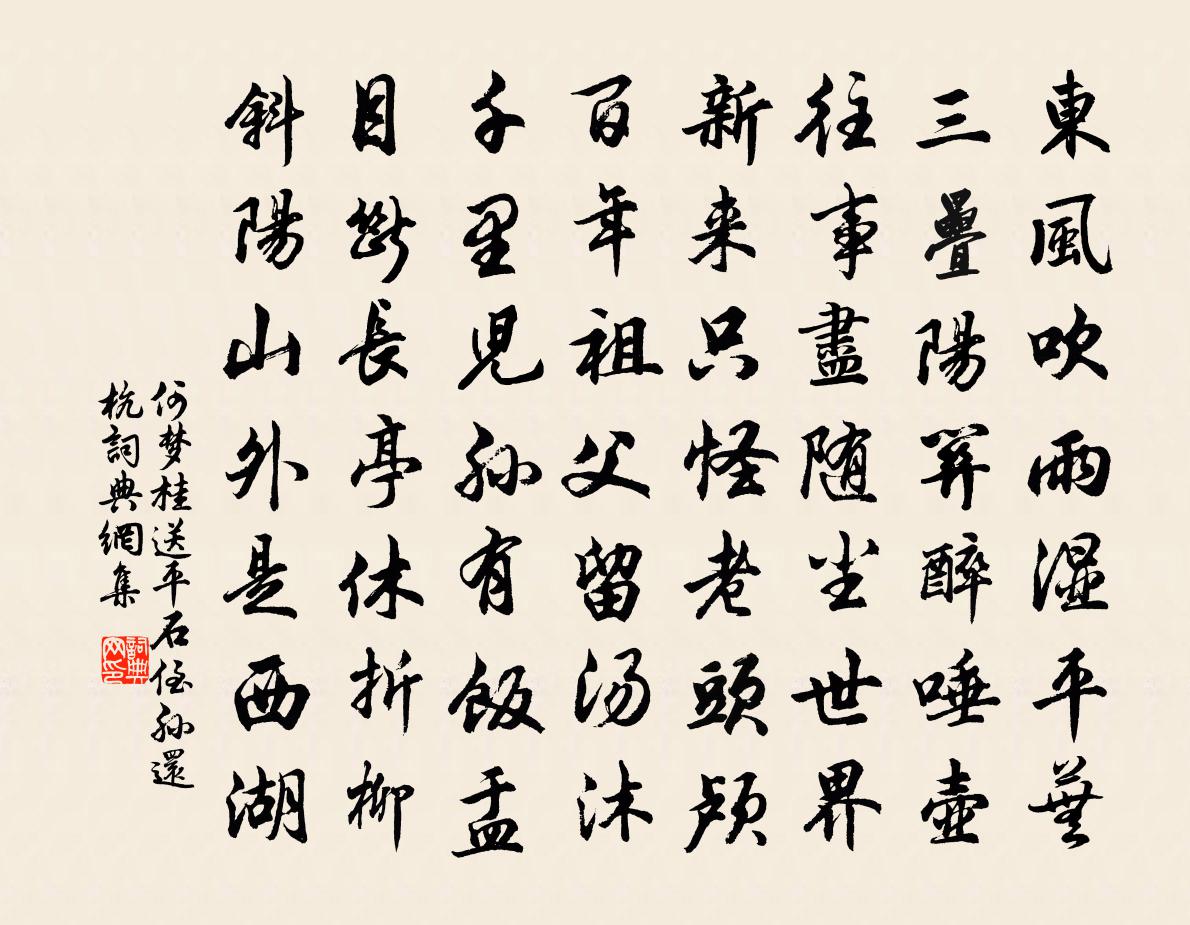 東風吹雨濕平蕪
三疊陽關醉唾壺
往事盡隨尘世界
新来只怪老頭顱
百年祖父留湯沐
千里兒孫有飯盂
目斷長亭休折柳
斜陽山外是西湖
何梦桂送平石侄孙還
杭詞典網集
詞典网印